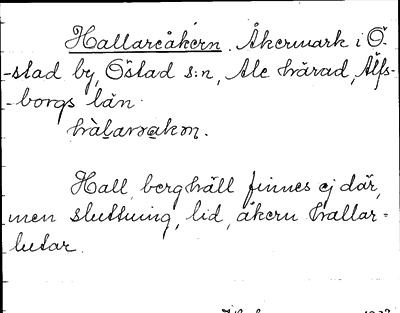 Hallareåkern. Åkermark i Ö-
-stad by, Östad s:n, Ale härad, Älfs-
-borgs län.
hàlaråkɐn.
Hall, berghäll finnes ej där,
men sluttning, lid, åkern hallar =
lutar.